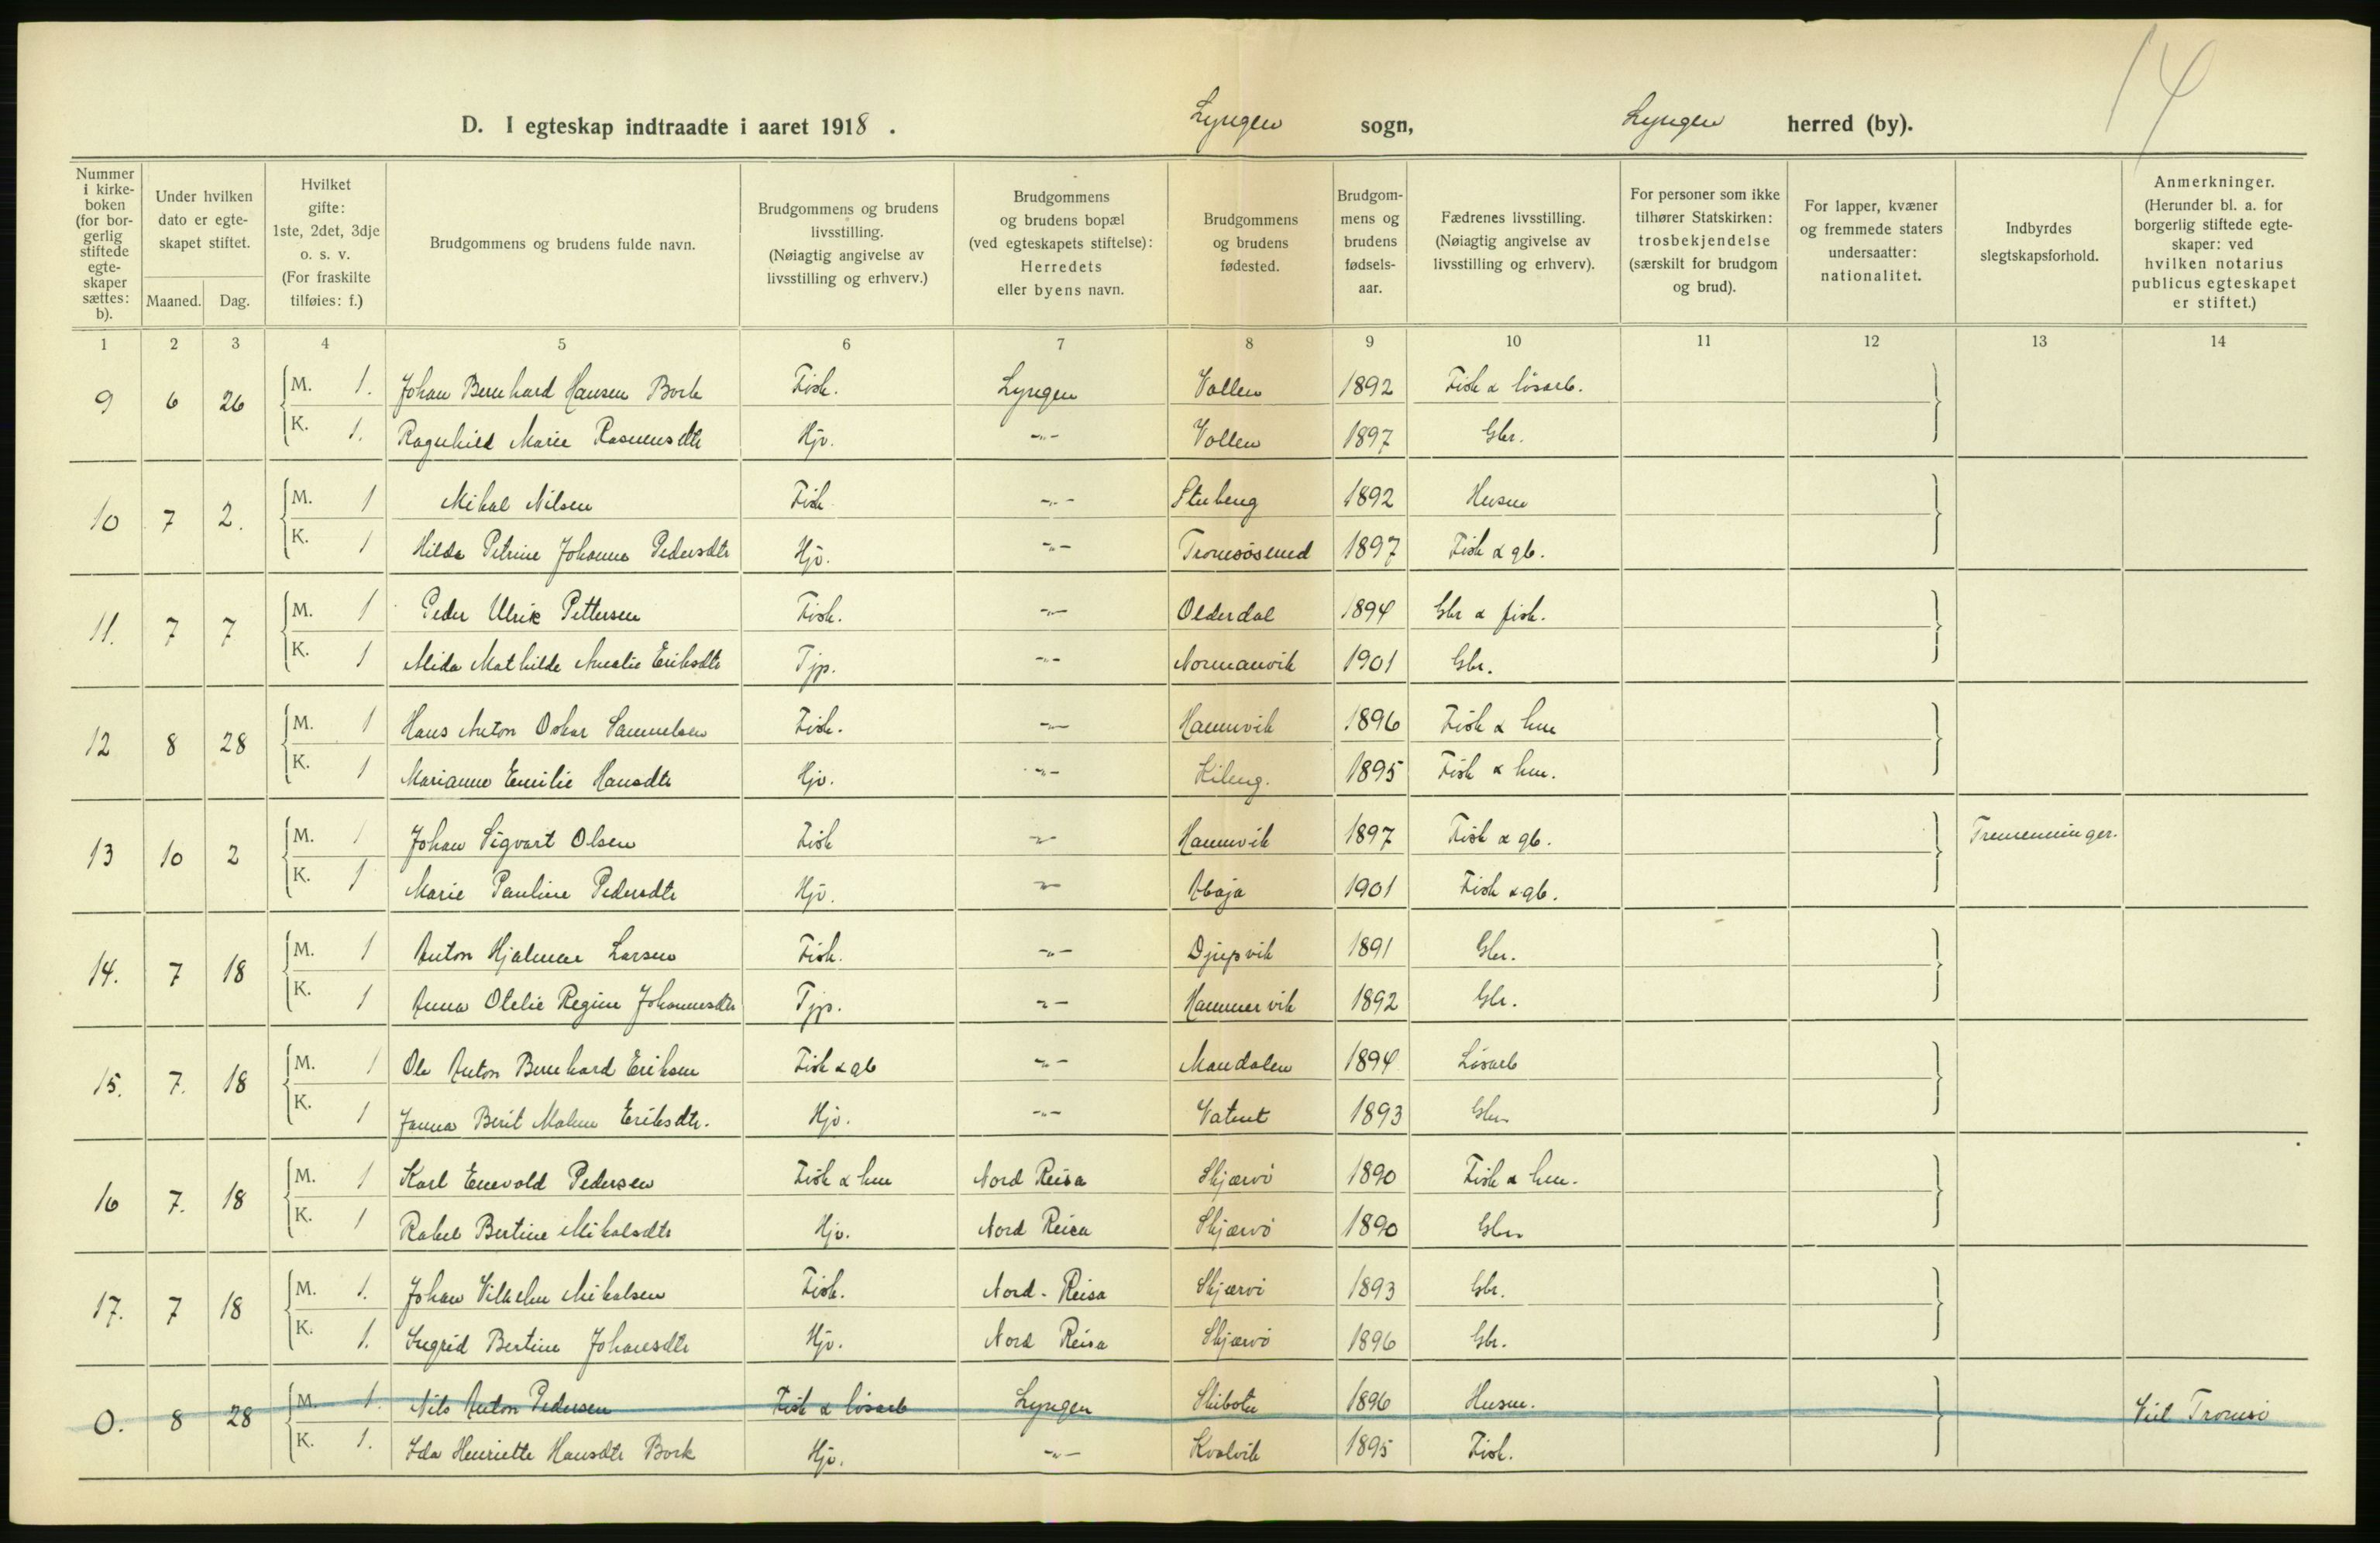 14
D. I egteskap indtraadte i aaret 1918. Lyngen sogn, Lyngen herred (by).
Nummer i kirke-boken (for bor-gerlig stiftede egte-skaper sættes: b).
Under hvilken dato er egte-skapet stiftet.
Maaned. Dag.
Hvilket gifte: 1ste, 2det, 3dje o. s. v. (For fraskilte tilføies: f.)
Brudgommens og brudens fulde navn.
Brudgommens og brudens livsstilling. (Nøiagtig angivelse av livsstilling og erhverv.)
Brudgommens og brudens bopæl (ved egteskapets stiftelse): Herredets eller byens navn.
Brudgommens og brudens fødested.
Brudgom-mens og brudens fødsels-aar.
Fædrenes livsstilling. (Nøiagtig angivelse av livsstilling og erhverv).
For personer som ikke tilhører Statskirken: trosbekjendelse (særskilt for brudgom og brud).
For lapper, kvæner og fremmede staters undersaatter: nationalitet.
Indbyrdes slegtskapsforhold.
Anmerkninger. (Herunder bl. a. for borgerlig stiftede egte-skaper: ved hvilken notarius publicus egteskapet er stiftet.)
1 2 3 4 5 6 7 8 9 10 11 12 13 14
9 6 26 M. 1. Johan Bernhard Hansen Bork Fisk. Lyngen Vollen 1892 Fisk & løsarb.
K. 1. Ragnhild Marie Rasmusdtr Hjv. -"- Vollen 1897 Gbr.
10 7 2. M. 1 Mikal Nilsen Fisk -"- Stubeng 1892 Husm
K. 1 Hilda Petrine Johanna Pedersdtr Hjv. -"- Tromsøsund 1897 Fisk & gb.
11. 7 7 M. 1 Peder Ulrik Pettersen Fisk. -"- Olderdal 1894 Gbr & fisk.
K. 1 Alida Mathilde Amalie Eriksdtr Tjp. -"- Normanvik 1901 Gbr.
12 8 28 M. 1 Hans Anton Oskar Samuelsen Fisk. -"- Hamnvik 1896 Fisk & hm
K. 1 Marianne Emilie Hansdtr Hjv. -"- Kileng. 1895 Fisk & hm.
13 10 2 M. 1 Johan Sigvart Olsen Fisk -"- Hamnvik 1897 Fisk & gb. Tremenninger.
K. 1 Marie Pauline Pedersdtr Hjv. -"- Abaja 1901 Fisk & gb.
14. 7 18 M. 1 Anton Hjalmar Larsen Fisk. -"- Djupvik 1891 Gbr.
K. 1 Anna Olelie Regine Johannesdtr Tjp. -"- Hammervik 1892 Gbr.
15. 7. 18 M. 1 Ole Anton Bernhard Eriksen Fisk & gb -"- Mandalen 1894 Løsarb
K. 1 Janna Berit Malene Eriksdtr. Hjv. -"- Vatnet 1893 Gbr.
16 7. 18 M. 1 Karl Enevold Pedersen Fisk & hm Nord Reisa Skjærvö 1890 Fisk & hm.
K. 1 Rakel Bertine Mikalsdtr Hjv. Nord Reisa Skjærvö 1890 Gbr
17. 7 18 M. 1. Johan Vilhelm Mikalsen Fisk. Nord-Reisa Skjærvö 1893 Gbr.
K. 1. Ingrid Bertine Johansdtr Hjv. Nord Reisa Skjærvö 1896 Gbr.
0. 8 28 M. 1. Nils Anton Pedersen Fisk & løsarb Lyngen Skibotn 1896 Husm. Viet Tromsö
K. 1. Ida Henriette Hansdtr Bork Hjv. -"- Kvalvik 1895 Fisk.